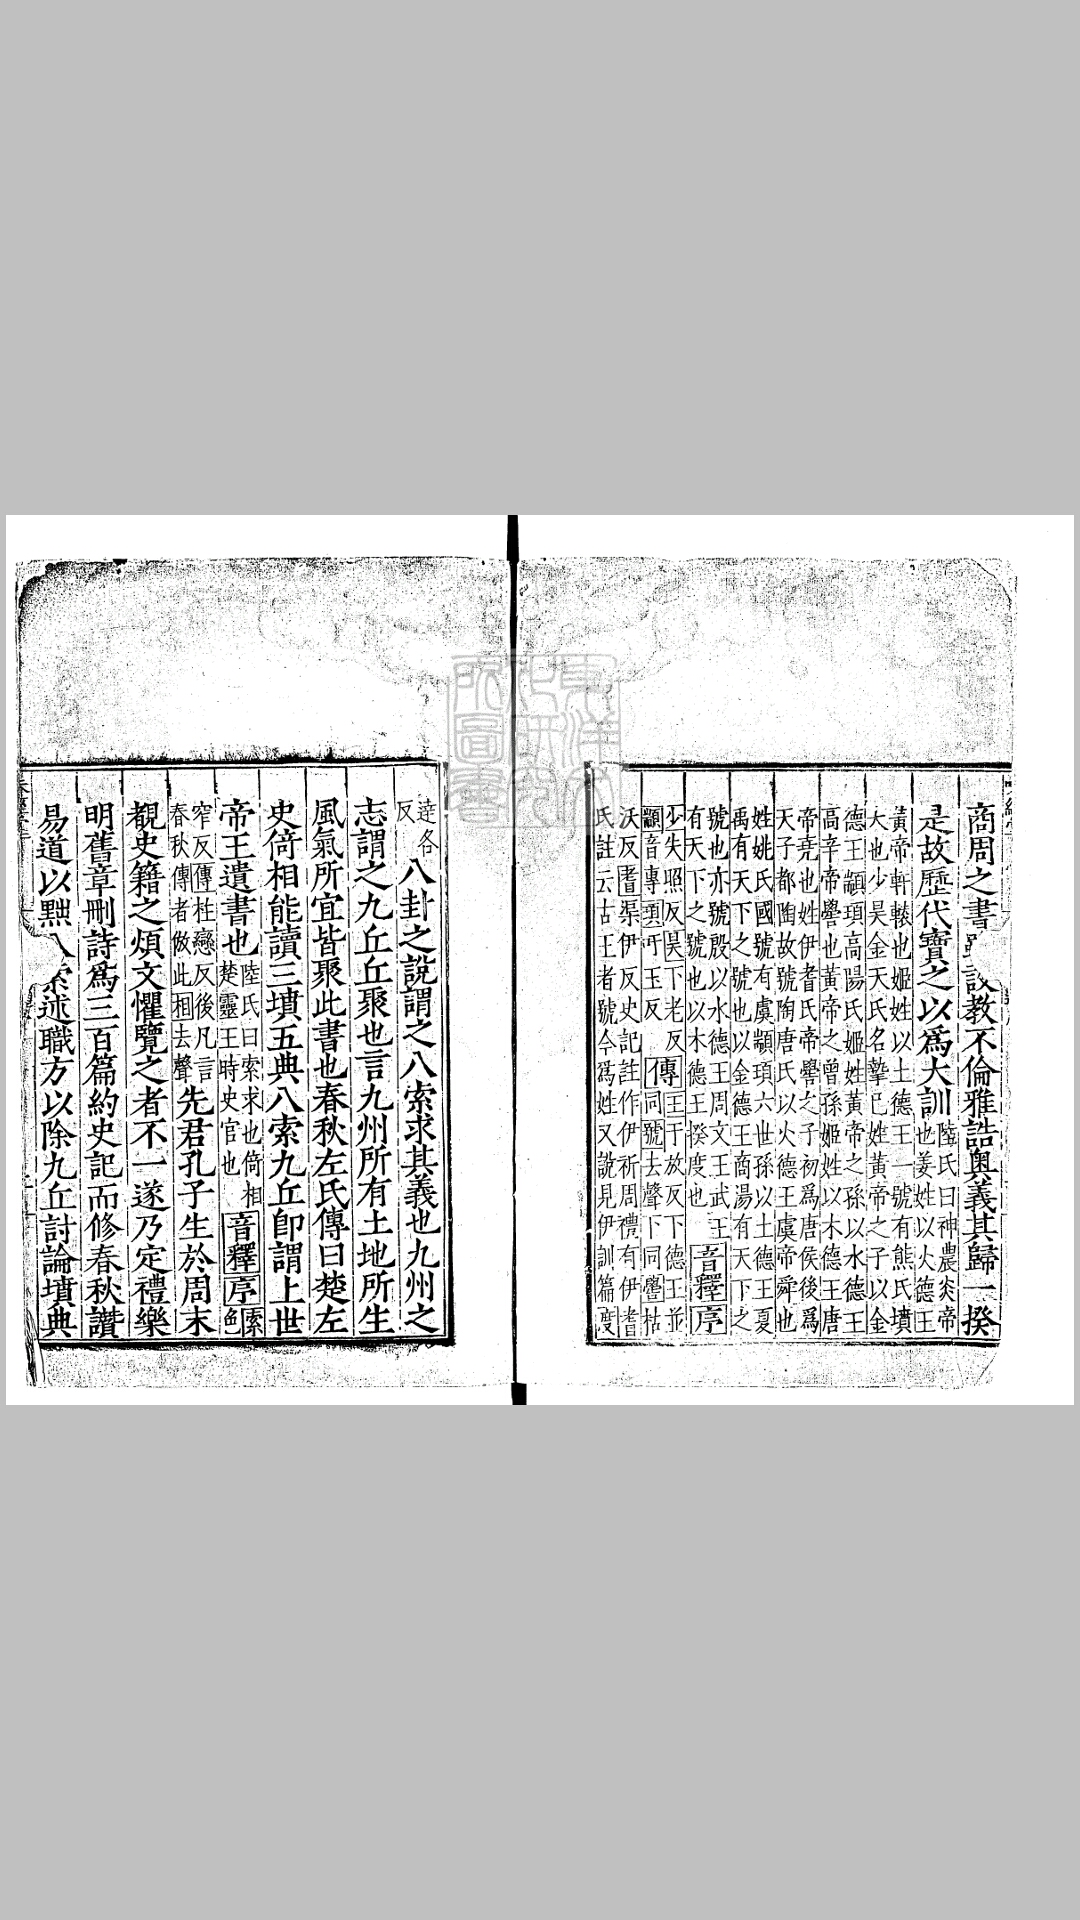 商周之書設教不倫雅誥奧義其歸一揆
是故歷代寶之以爲大訓陸氏曰神農炎帝
也姜姓以火德王
黃帝軒轅也姬姓以土德王一號有熊氏墳
大也少昊金天氏名摯己姓黃帝之子以金
德王顓頊高陽氏姬姓黃帝之孫以水德王
高辛帝嚳也黃帝之曾孫姬姓以木德王唐
帝堯也姓伊耆氏帝嚳之子初爲唐侯後爲
天子都陶故號陶唐氏以火德王虞帝舜也
姓姚氏國號有虞顓頊六世孫以土德王夏
禹有天下之號也以金德王商湯有天下之
號也亦號殷以水德王周文王武王
有天下之號也以木德王揆度也
音釋序
少失照反昊下老反
顓音專頊吁玉反
傳
王于放反下德王並
同號去聲下同嚳枯
沃反耆渠伊反史記註作伊祈周禮有伊耆
氏註云古王者號今爲姓又說見伊訓篇度
達各
反
八卦之說謂之八索求其義也九州之
志謂之九丘丘聚也言九州所有土地所生
風氣所宜皆聚此書也春秋左氏傳曰楚左
史倚相能讀三墳五典八索九丘卽謂上世
帝王遺書也陸氏曰索求也倚相
楚靈王時史官也
音釋序
索
色
窄反傳柱戀反後凡言
春秋傳者倣此相去聲
先君孔子生於周末
覩史籍之煩文懼覽之者不一遂乃定禮樂
明舊章刪詩爲三百篇約史記而修春秋讚
易道以黜八索述職方以除九丘討論墳典